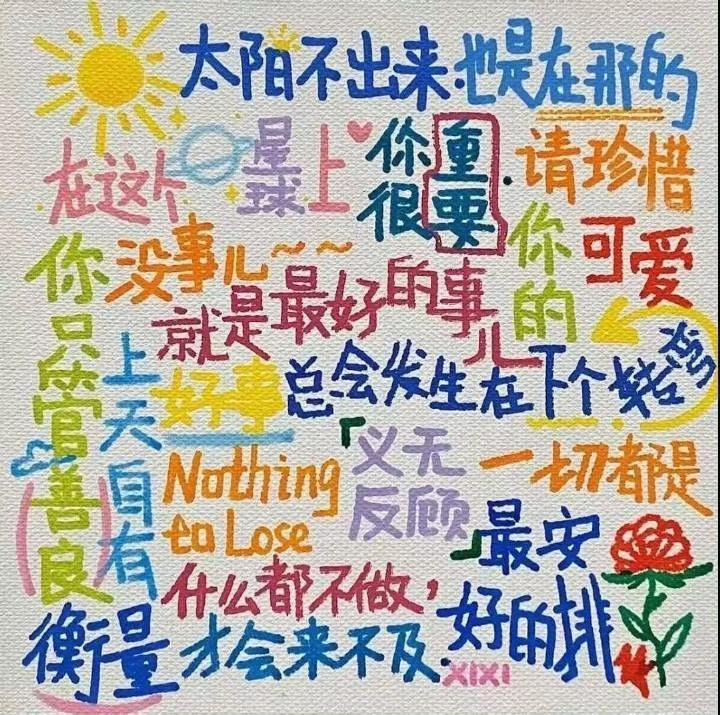 太阳不出来也是在那的
在这个星球上
你很重要
请珍惜你的可爱
没事儿~~
就是最好的事儿
你只管善良
上天自有衡量
好事总会发生在下个转弯
Nothing
to Lose
「义无反顾」
一切都是最安好的排
什么都不做，
才会来不及.
XIXI